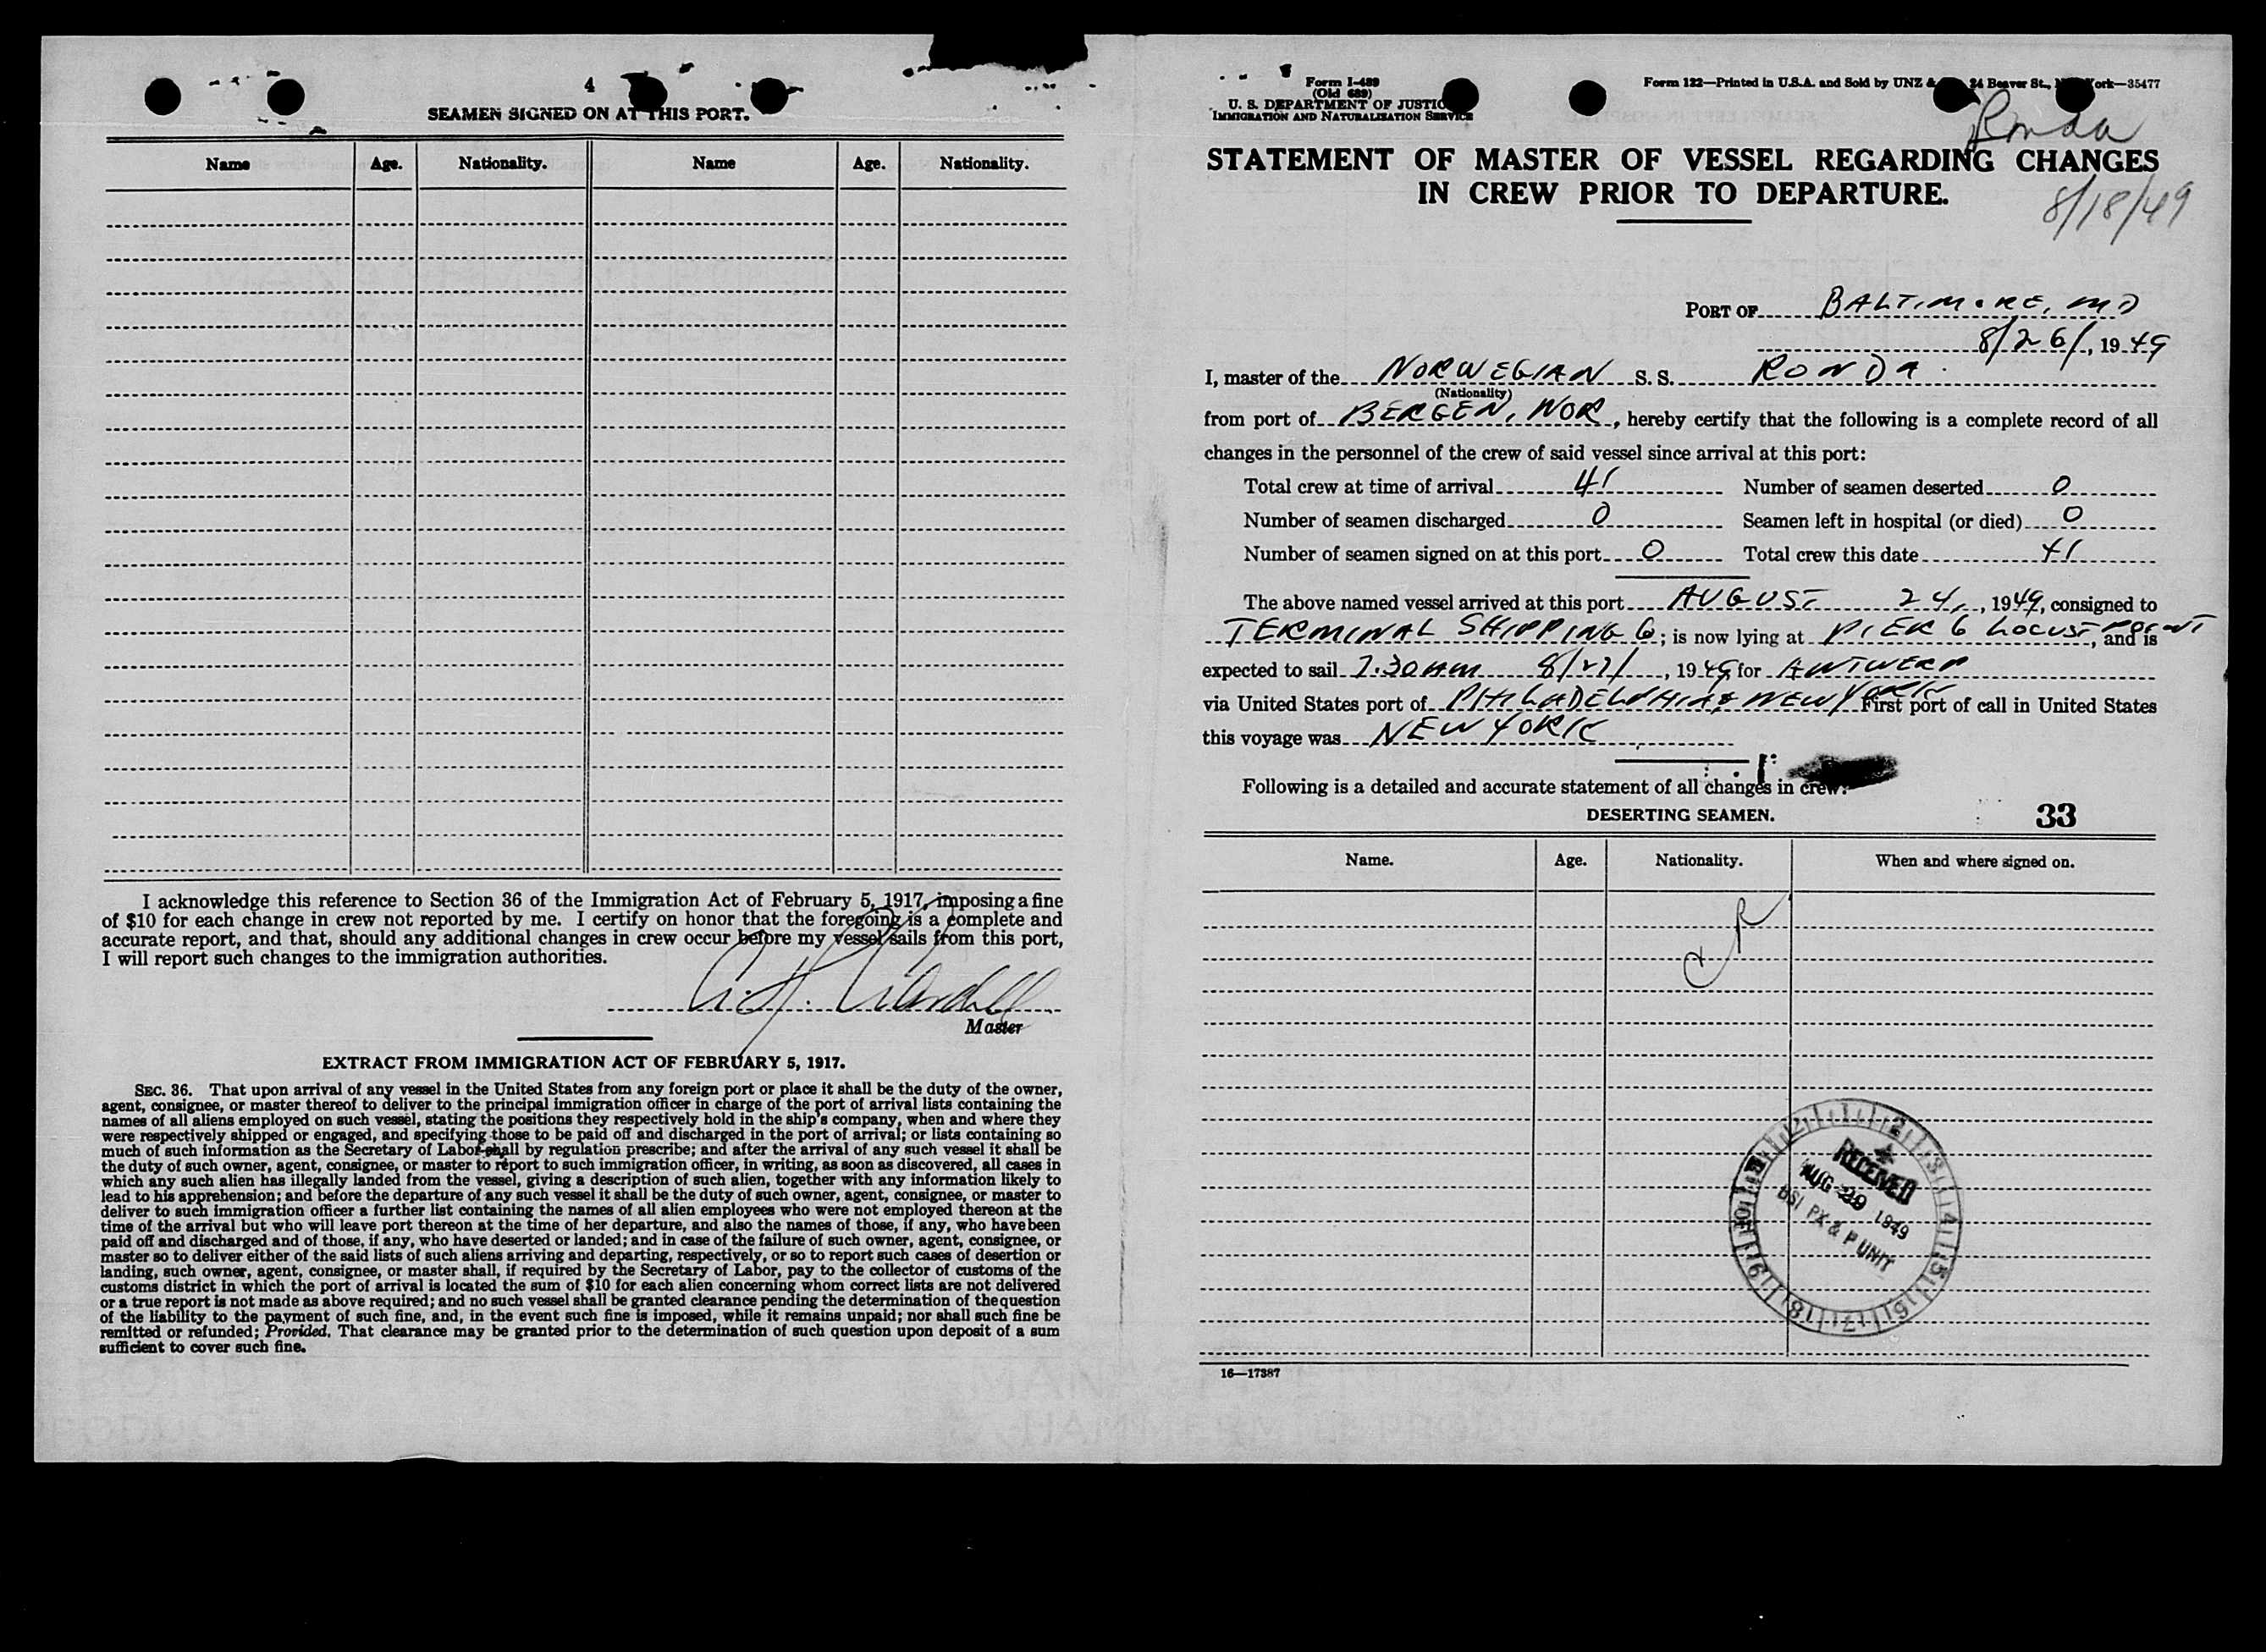 4
SEAMEN SIGNED ON AT THIS PORT.
Name Age. Nationality. Name Age. Nationality.
I acknowledge this reference to Section 36 of the Immigration Act of February 5, 1917, imposing a fine
of $10 for each change in crew not reported by me. I certify on honor that the foregoing is a complete and
accurate report, and that, should any additional changes in crew occur before my vessel sails from this port,
I will report such changes to the immigration authorities.
Master
EXTRACT FROM IMMIGRATION ACT OF FEBRUARY 5, 1917.
SEC. 36. That upon arrival of any vessel in the United States from any foreign port or place it shall be the duty of the owner,
agent, consignee, or master thereof to deliver to the principal immigration officer in charge of the port of arrival lists containing the
names of all aliens employed on such vessel, stating the positions they respectively hold in the ship's company, when and where they
were respectively shipped or engaged, and specifying those to be paid off and discharged in the port of arrival; or lists containing so
much of such information as the Secretary of Labor shall by regulation prescribe; and after the arrival of any such vessel it shall be
the duty of such owner, agent, consignee, or master to report to such immigration officer, in writing, as soon as discovered, all cases in
which any such alien has illegally landed from the vessel, giving a description of such alien, together with any information likely to
lead to his apprehension; and before the departure of any such vessel it shall be the duty of such owner, agent, consignee, or master to
deliver to such immigration officer a further list containing the names of all alien employees who were not employed thereon at the
time of the arrival but who will leave port thereon at the time of her departure, and also the names of those, if any, who have been
paid off and discharged and of those, if any, who have deserted or landed; and in case of the failure of such owner, agent, consignee, or
master so to deliver either of the said lists of such aliens arriving and departing, respectively, or so to report such cases of desertion or
landing, such owner, agent, consignee, or master shall, if required by the Secretary of Labor, pay to the collector of customs of the
customs district in which the port of arrival is located the sum of $10 for each alien concerning whom correct lists are not delivered
or a true report is not made as above required; and no such vessel shall be granted clearance pending the determination of the question
of the liability to the payment of such fine, and, in the event such fine is imposed, while it remains unpaid; nor shall such fine be
remitted or refunded; Provided, That clearance may be granted prior to the determination of such question upon deposit of a sum
sufficient to cover such fine.
Form I-489
(Old 689)
U. S. DEPARTMENT OF JUSTIC
IMMIGRATION AND NATURALIZATION SERVICE
Form 122—Printed in U.S.A. and Sold by UNZ & 24 Beaver St., ork—35477
Ronda
STATEMENT OF MASTER OF VESSEL REGARDING CHANGES
IN CREW PRIOR TO DEPARTURE.
8/18/49
PORT OF BALTIMORE, MD
8/26/, 1949
I, master of the NORWEGIAN S. S. RONDA
(Nationality)
from port of BERGEN, NOR, hereby certify that the following is a complete record of all
changes in the personnel of the crew of said vessel since arrival at this port:
Total crew at time of arrival 41 Number of seamen deserted 0
Number of seamen discharged 0 Seamen left in hospital (or died) 0
Number of seamen signed on at this port 0 Total crew this date 41
The above named vessel arrived at this port AUGUST 24, 1949, consigned to
TERMINAL SHIPPING Co; is now lying at PIER 6 LOCUST POINT, and is
expected to sail 7.30 AM 8/27/, 1949 for ANTWERP
via United States port of PHILADELPHIA & NEW YORK First port of call in United States
this voyage was NEW YORK
Following is a detailed and accurate statement of all changes in crew:
DESERTING SEAMEN. 33
Name. Age. Nationality. When and where signed on.
RECEIVED
AUG 29 1949
BSI PX & P UNIT
16—17387